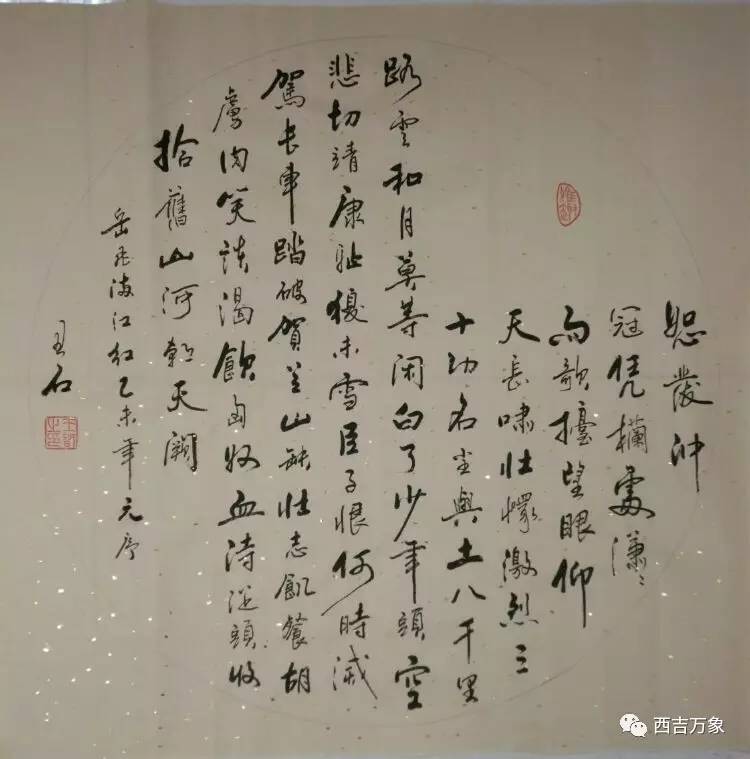 怒發冲
冠凭欄處瀟瀟
雨歇擡望眼仰
天長嘯壮懷激烈三
十功名尘與土八千里
路雲和月莫等闲白了少年頭空
悲切靖康耻猶未雪臣子恨何時滅
駕長車踏破賀兰山缺壮志飢餐胡
虜肉笑談渴飲匈奴血待從頭收
拾舊山河朝天闕
岳飛满江红乙未年元月
王石
西吉万象